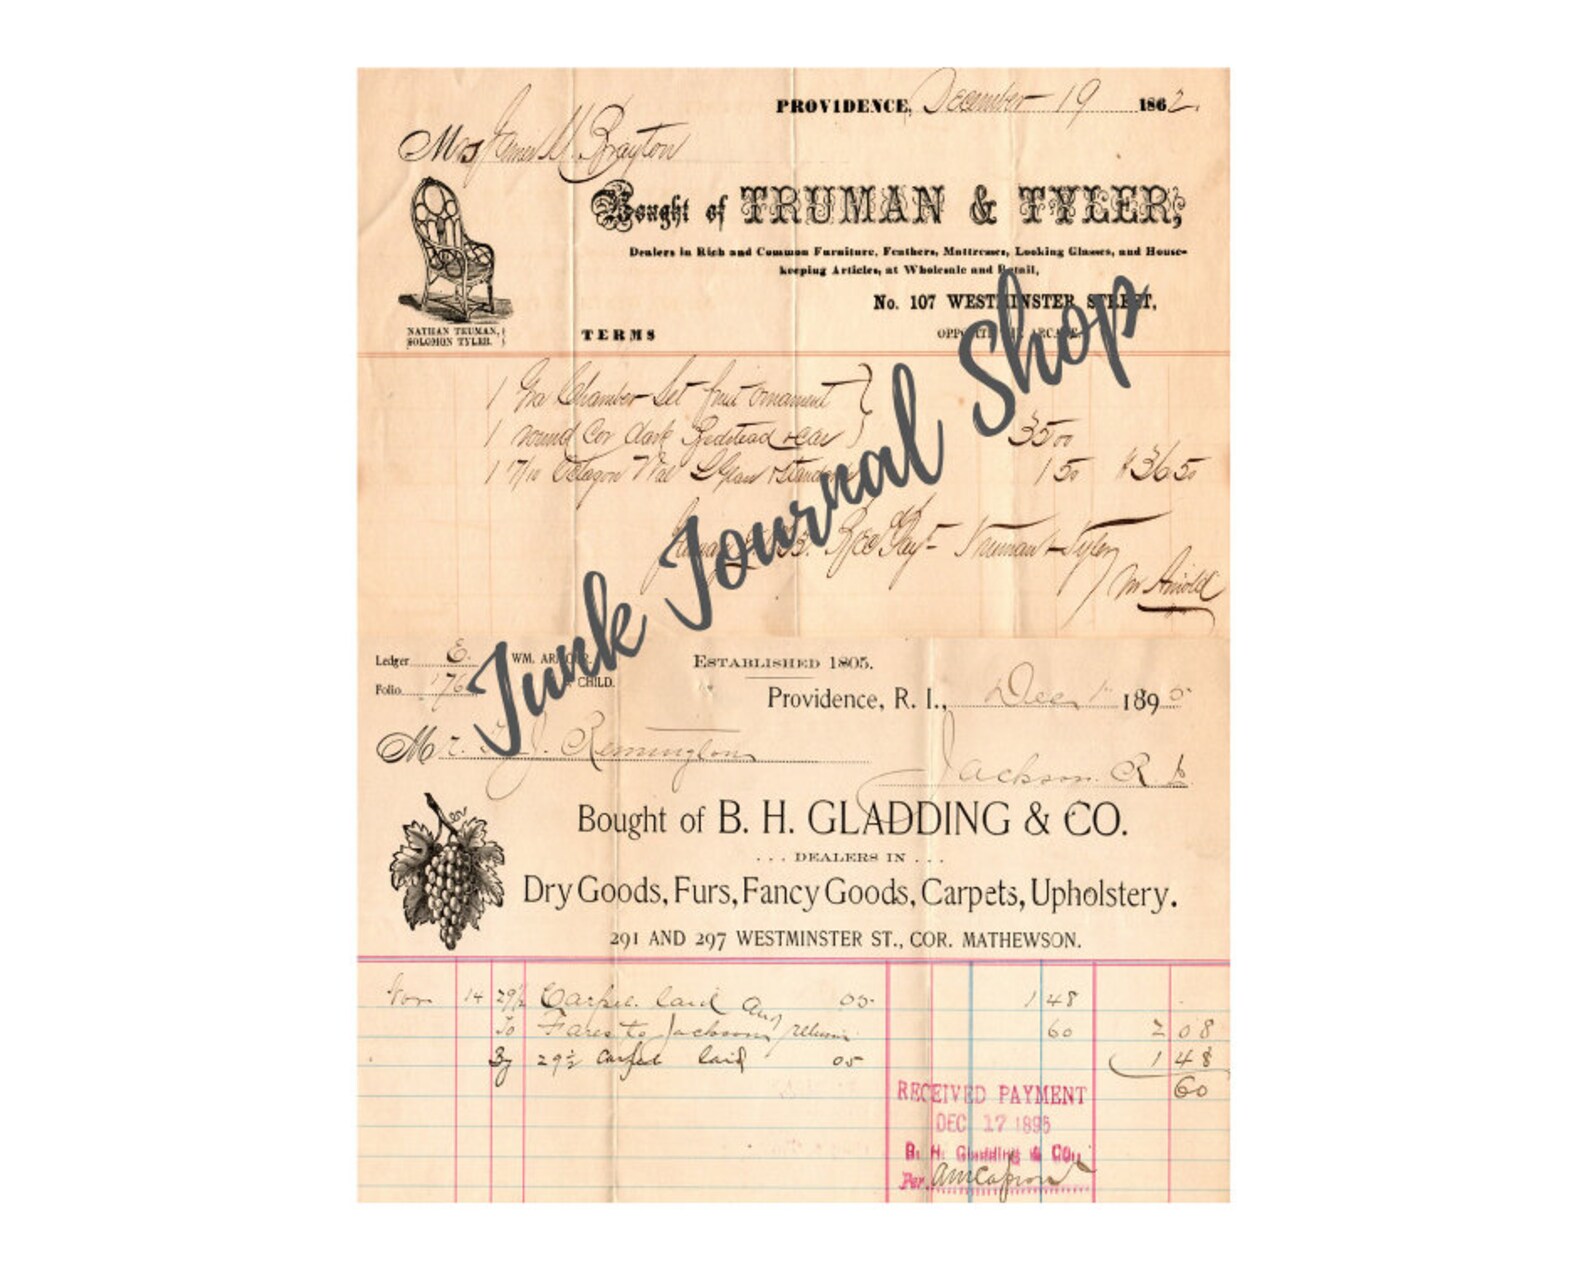 PROVIDENCE, December 19 1862.
Mrs James M. Brayton
Bought of TRUMAN & TYLER,
Dealers in Rich and Common Furniture, Feathers, Mattresses, Looking Glasses, and House-
keeping Articles, at Wholesale and Retail,
No. 107 WESTMINSTER STREET,
OPPOSITE THE ARCADE.
NATHAN TRUMAN,
SOLOMON TYLER.
TERMS
1 Chamber Set fruit ornament
1 round Cor dark Bedstead 35 00
1 7/10 Octagon Wal 1 50 $36 50
Rec'd Pay't Truman & Tyler
M Arnold
Junk Journal Shop
Ledger E. WM. ARMOUR.
Folio 176 CHILD.
ESTABLISHED 1805.
Providence, R. I., Dec 1 1895
Mr. J. Remington
Jackson R I.
Bought of B. H. GLADDING & CO.
... DEALERS IN ...
Dry Goods, Furs, Fancy Goods, Carpets, Upholstery.
291 AND 297 WESTMINSTER ST., COR. MATHEWSON.
Nov 14 29½ Carpet laid 05 1 48
To Fares to Jackson & return 60 2 08
By 29½ Carpet laid 05 1 48
60
RECEIVED PAYMENT
DEC 17 1895
B. H. Gladding & CO.,
Per